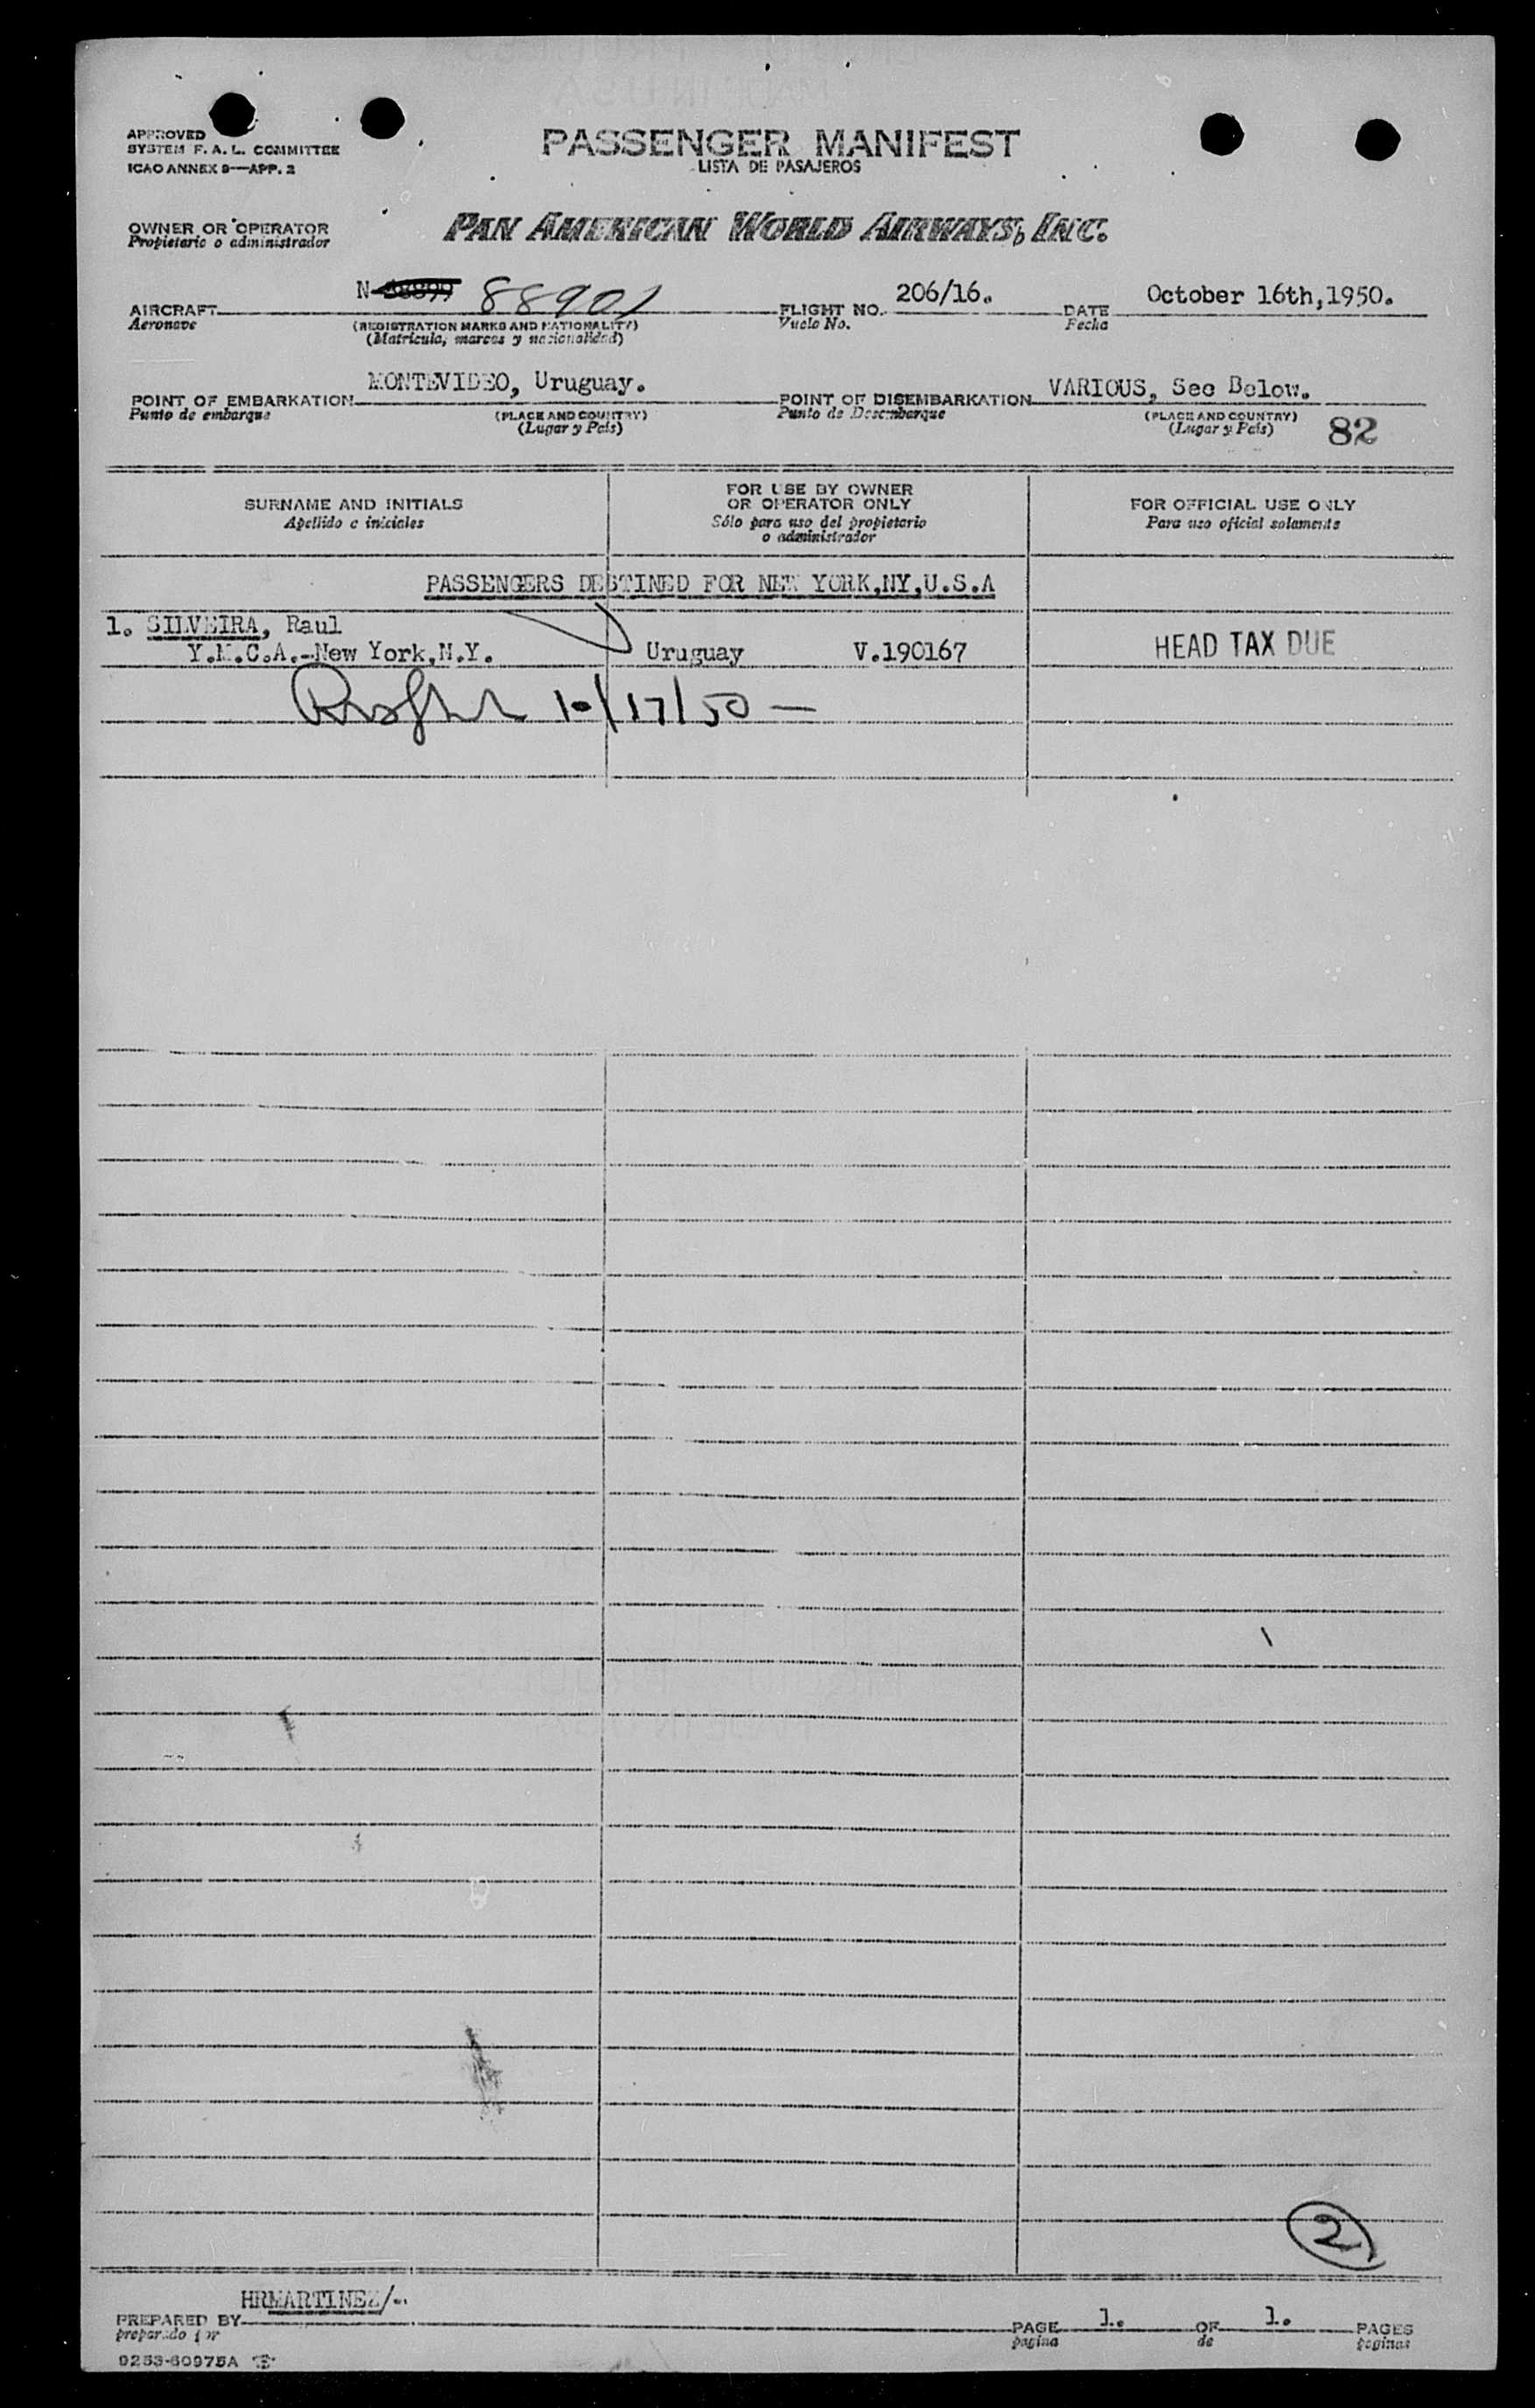 APPROVED
SYSTEM F. A. L. COMMITTEE
ICAO ANNEX 9—APP. 2
PASSENGER MANIFEST
LISTA DE PASAJEROS
OWNER OR OPERATOR
Propietario o administrador
PAN AMERICAN WORLD AIRWAYS, INC.
AIRCRAFT N- 88901
Aeronave
(REGISTRATION MARKS AND NATIONALITY)
(Matrícula, marcas y nacionalidad)
FLIGHT NO. 206/16.
Vuelo No.
DATE October 16th,1950.
Fecha
POINT OF EMBARKATION MONTEVIDEO, Uruguay.
Punto de embarque
(PLACE AND COUNTRY)
(Lugar y País)
POINT OF DISEMBARKATION VARIOUS, See Below.
Punto de Desembarque
(PLACE AND COUNTRY)
(Lugar y País)
82
SURNAME AND INITIALS
Apellido e iniciales
FOR USE BY OWNER
OR OPERATOR ONLY
Sólo para uso del propietario
o administrador
FOR OFFICIAL USE ONLY
Para uso oficial solamente
PASSENGERS DESTINED FOR NEW YORK,NY,U.S.A
1. SILVEIRA, Raul
Y.M.C.A.-New York,N.Y. Uruguay V.190167 HEAD TAX DUE
10/17/50 —
2
HRMARTINEZ/-.
PREPARED BY
preparado por
PAGE 1. OF 1. PAGES
pagina de paginas
9253-60975A